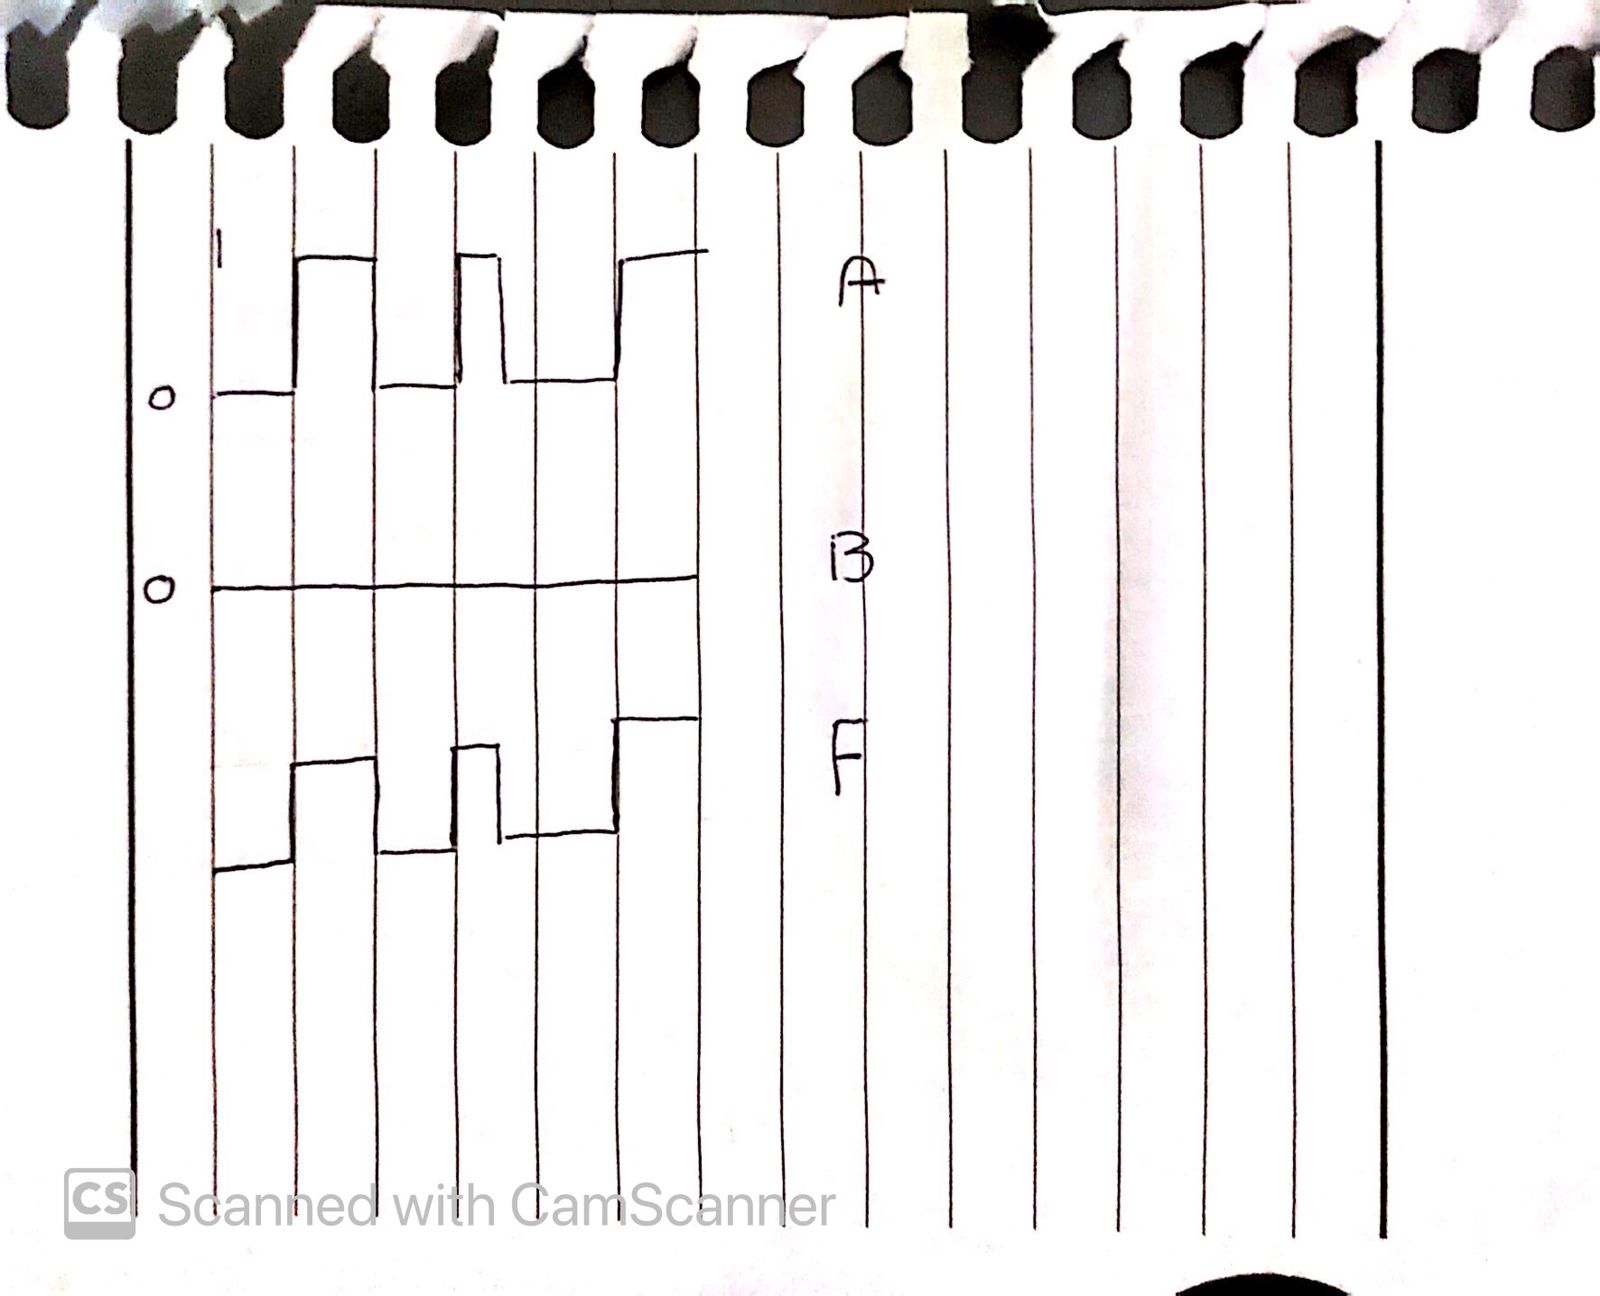 1
A
0
B
0
F
CS Scanned with CamScanner